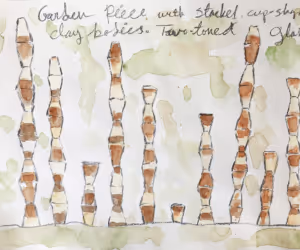 Garden Piece with stacked cup-sha
clay bodies. Two-toned gla